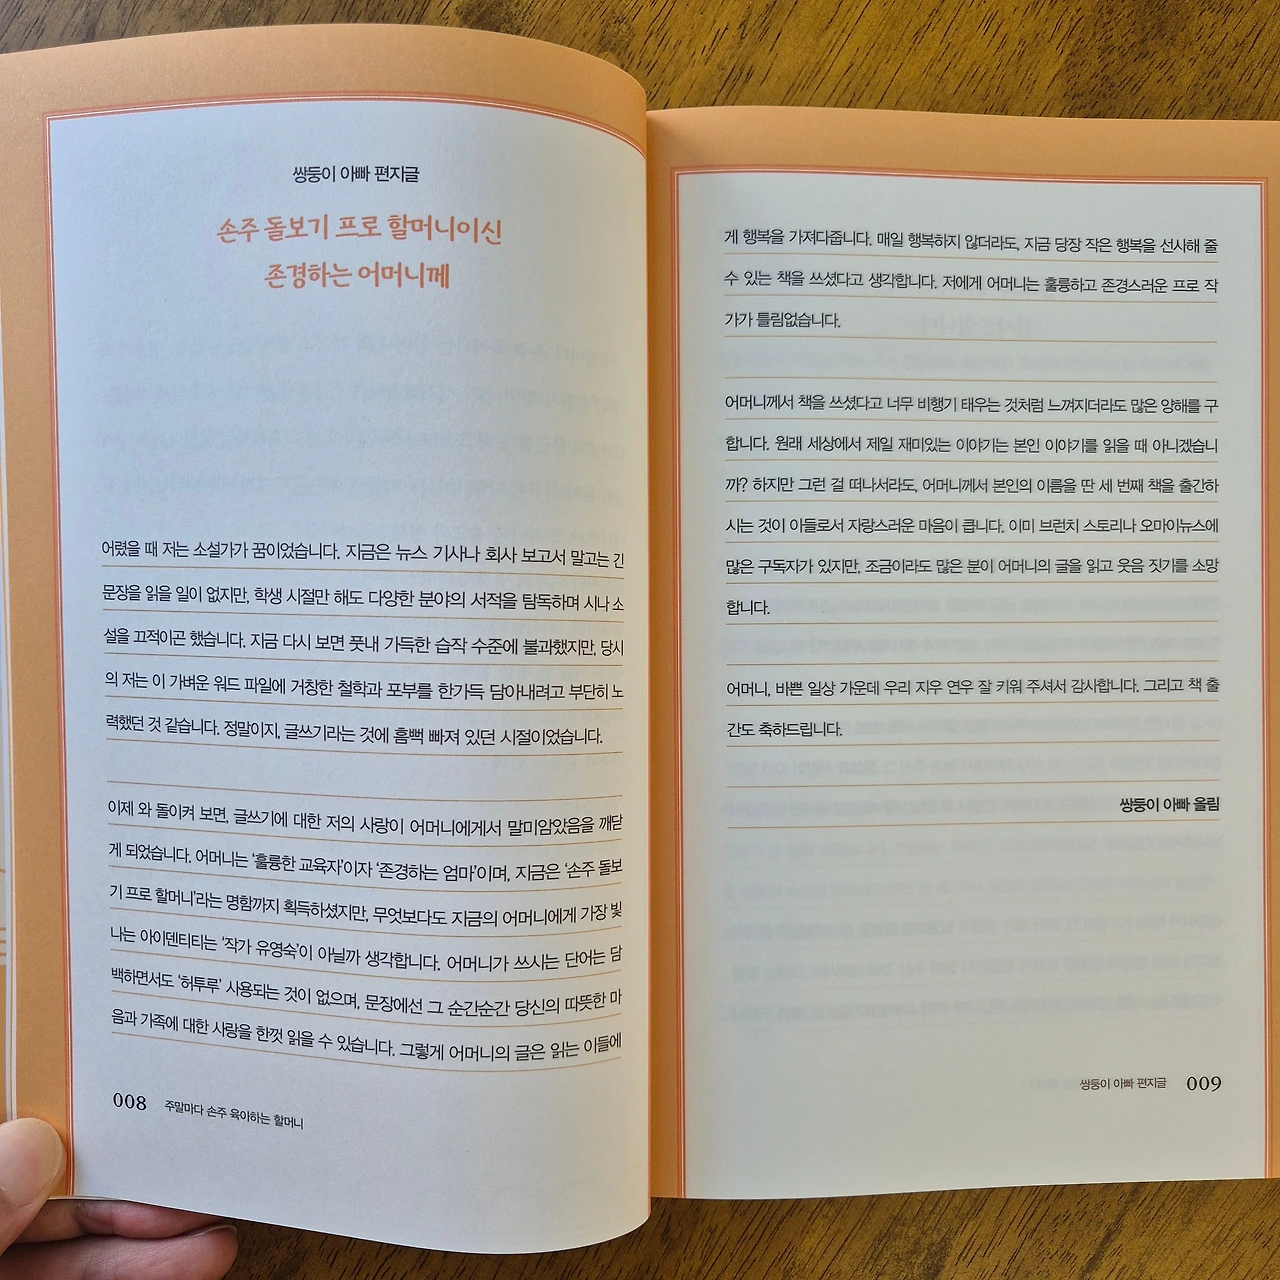 쌍둥이 아빠 편지글
손주 돌보기 프로 할머니이신
존경하는 어머니께
어렸을 때 저는 소설가가 꿈이었습니다. 지금은 뉴스 기사나 회사 보고서 말고는 긴
문장을 읽을 일이 없지만, 학생 시절만 해도 다양한 분야의 서적을 탐독하며 시나 소
설을 끄적이곤 했습니다. 지금 다시 보면 풋내 가득한 습작 수준에 불과했지만, 당시
의 저는 이 가벼운 워드 파일에 거창한 철학과 포부를 한가득 담아내려고 부단히 노
력했던 것 같습니다. 정말이지, 글쓰기라는 것에 흠뻑 빠져 있던 시절이었습니다.
이제 와 돌이켜 보면, 글쓰기에 대한 저의 사랑이 어머니에게서 말미암았음을 깨닫
게 되었습니다. 어머니는 ‘훌륭한 교육자’이자 ‘존경하는 엄마’이며, 지금은 ‘손주 돌보
기 프로 할머니’라는 명함까지 획득하셨지만, 무엇보다도 지금의 어머니에게 가장 빛
나는 아이덴티티는 ‘작가 유영숙’이 아닐까 생각합니다. 어머니가 쓰시는 단어는 담
백하면서도 ‘허투루’ 사용되는 것이 없으며, 문장에선 그 순간순간 당신의 따뜻한 마
음과 가족에 대한 사랑을 한껏 읽을 수 있습니다. 그렇게 어머니의 글은 읽는 이들에
008 주말마다 손주 육아하는 할머니
게 행복을 가져다줍니다. 매일 행복하지 않더라도, 지금 당장 작은 행복을 선사해 줄
수 있는 책을 쓰셨다고 생각합니다. 저에게 어머니는 훌륭하고 존경스러운 프로 작
가가 틀림없습니다.
어머니께서 책을 쓰셨다고 너무 비행기 태우는 것처럼 느껴지더라도 많은 양해를 구
합니다. 원래 세상에서 제일 재미있는 이야기는 본인 이야기를 읽을 때 아니겠습니
까? 하지만 그런 걸 떠나서라도, 어머니께서 본인의 이름을 딴 세 번째 책을 출간하
시는 것이 아들로서 자랑스러운 마음이 큽니다. 이미 브런치 스토리나 오마이뉴스에
많은 구독자가 있지만, 조금이라도 많은 분이 어머니의 글을 읽고 웃음 짓기를 소망
합니다.
어머니, 바쁜 일상 가운데 우리 지우 연우 잘 키워 주셔서 감사합니다. 그리고 책 출
간도 축하드립니다.
쌍둥이 아빠 올림
쌍둥이 아빠 편지글 009